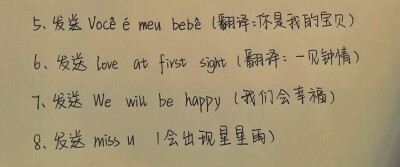 5、发送 Você é meu bebê (翻译:你是我的宝贝)
6、发送 love at first sight (翻译:一见钟情)
7、发送 We will be happy (我们会幸福)
8、发送 miss u (会出现星星雨)